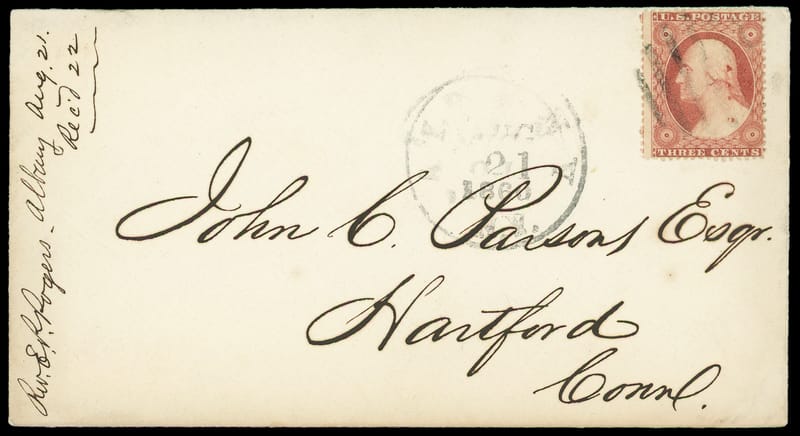 Rev. E. P. Rogers - Albany Aug. 21.
Rec'd 22
U.S. POSTAGE
THREE CENTS
21
186
John C. Parsons Esqr.
Hartford
Conn.